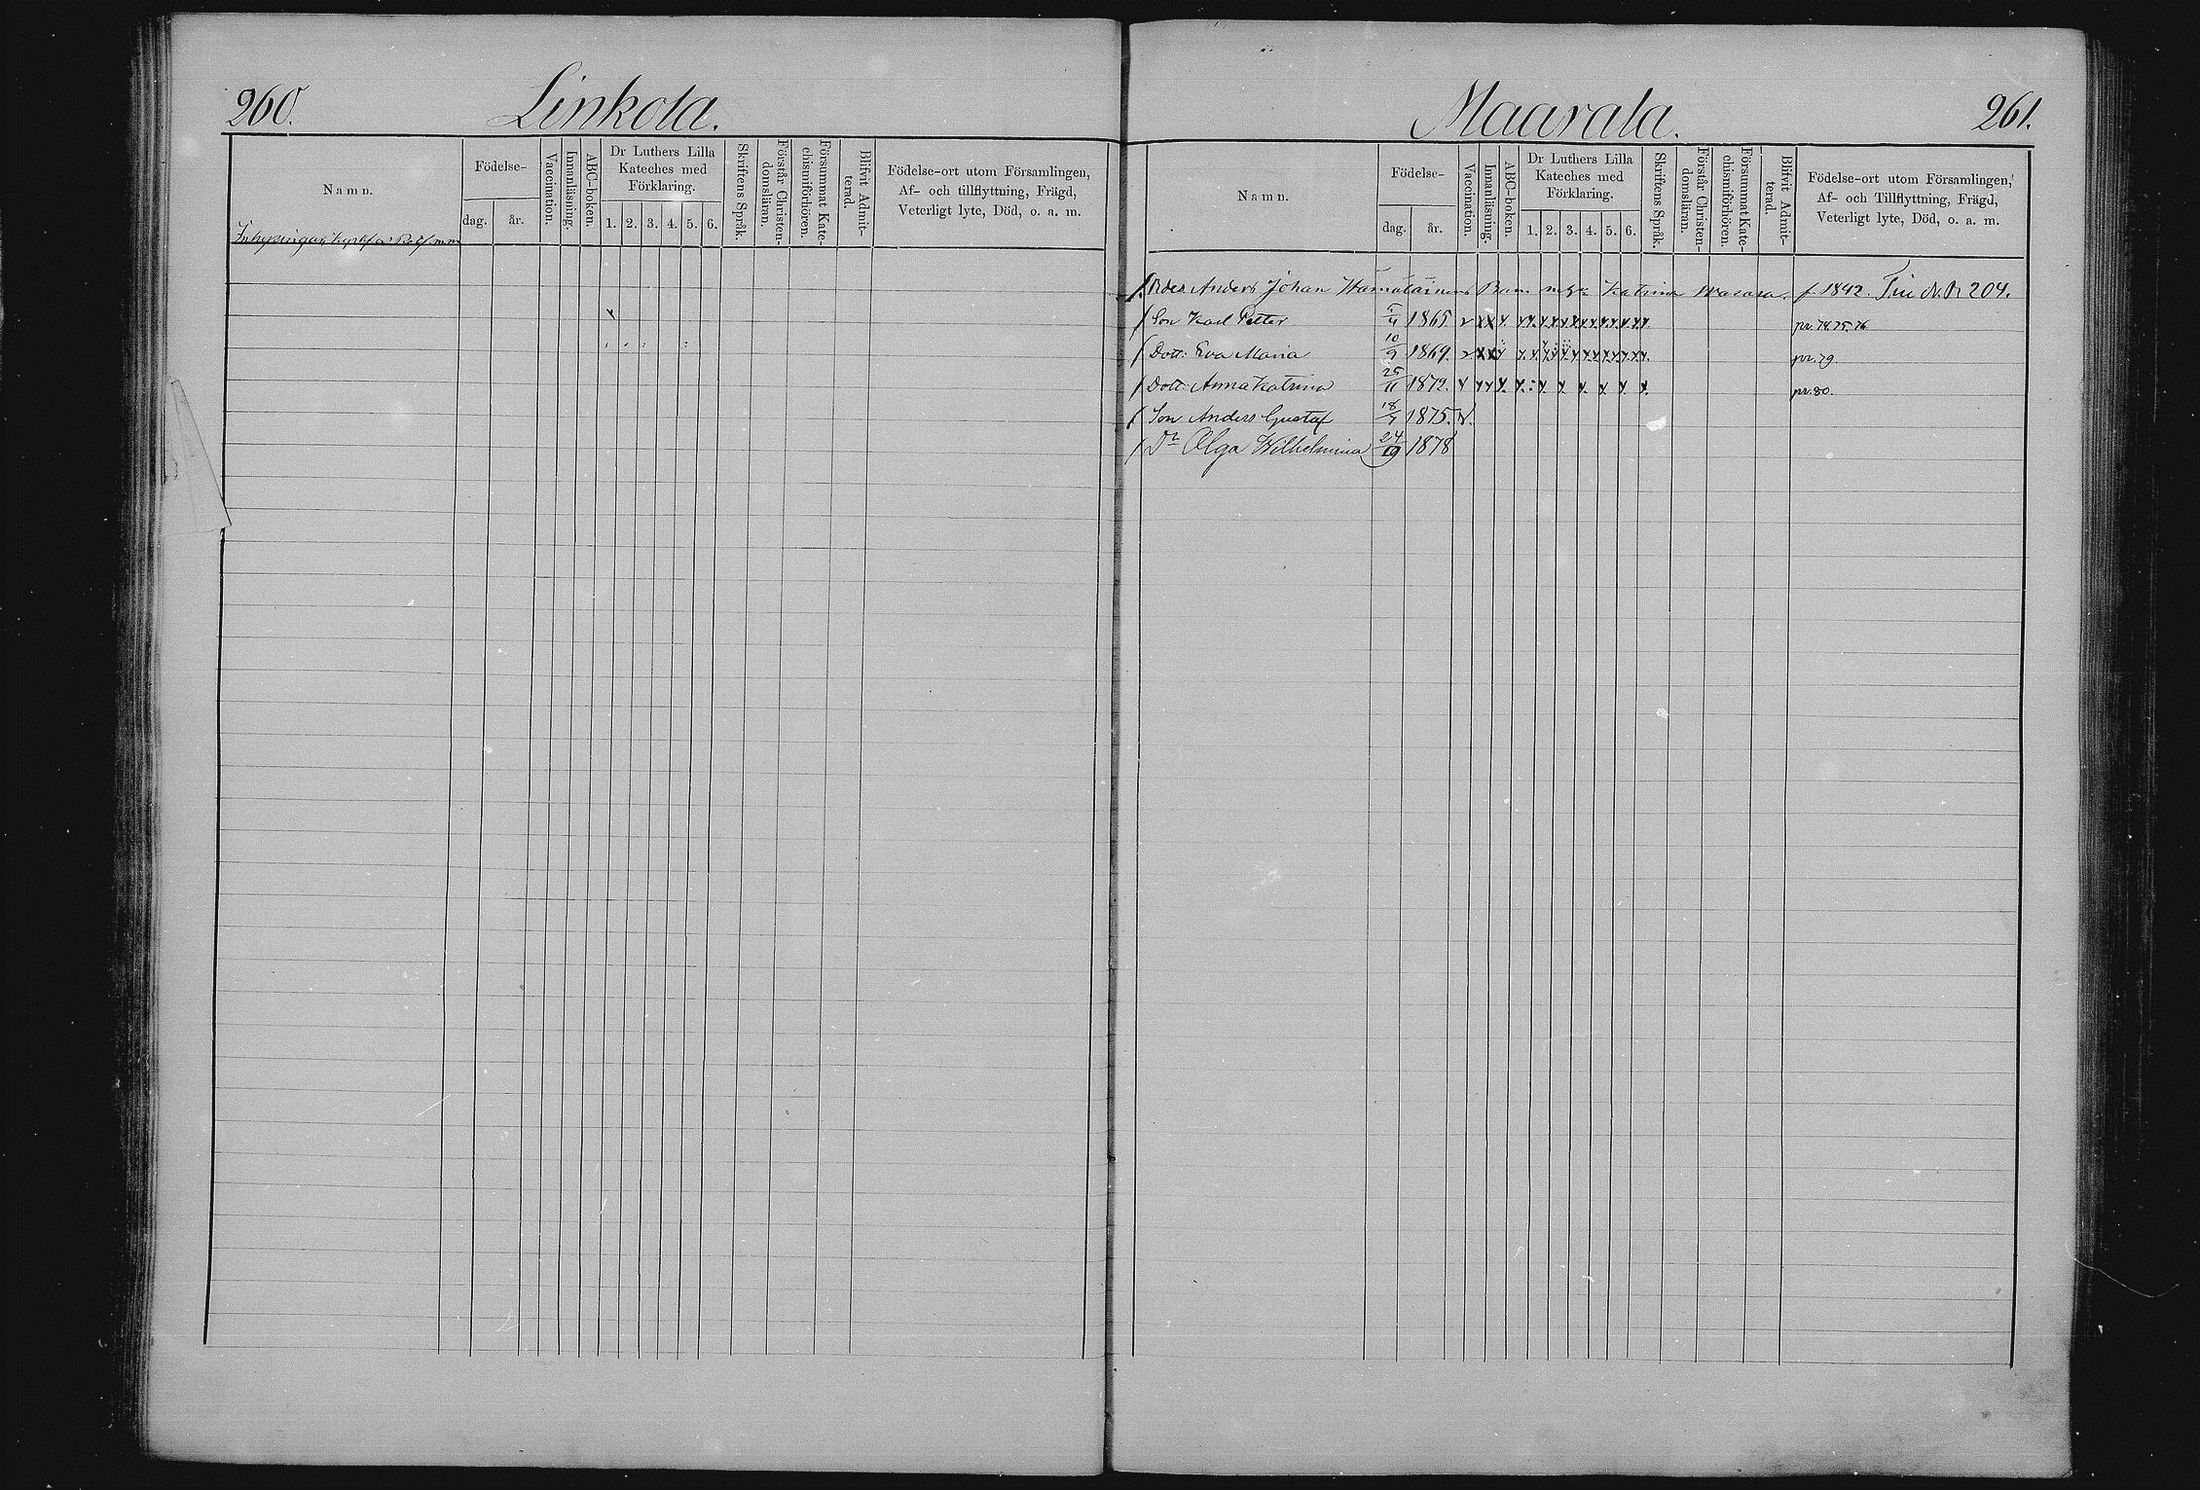 260.
Linkola.
Namn.
Födelse-
dag.
år.
Vaccination.
Innanläsning.
ABC-boken.
Dr Luthers Lilla
Kateches med
Förklaring.
1. 2. 3. 4. 5. 6.
Skriftens Språk.
Förstår Christen-
domsläran.
Försummat Kate-
chismiförhören.
Blifvit Admit-
terad.
Födelse-ort utom Församlingen,
Af- och tillflyttning, Frägd,
Veterligt lyte, Död, o. a. m.
Inhysingar
Maarala.
261.
Namn.
Födelse-
dag.
år.
Vaccination.
Innanläsning.
ABC-boken.
Dr Luthers Lilla
Kateches med
Förklaring.
1. 2. 3. 4. 5. 6.
Skriftens Språk.
Förstår Christen-
domsläran.
Försummat Kate-
chismiförhören.
Blifvit Admit-
terad.
Födelse-ort utom Församlingen,
Af- och Tillflyttning, Frägd,
Veterligt lyte, Död, o. a. m.
Anders Johan Hämäläinens Barn Katrina f. 1842. 204.
Son Karl Petter 1865. pr. 74. 75. 76
Dott: Eva Maria 10/9 1869. pr. 79.
Dott: Anna Katrina 25/11 1872. pr. 80.
Son Anders Gustaf 1875.
Dr Olga Wilhelmina 24/10 1878